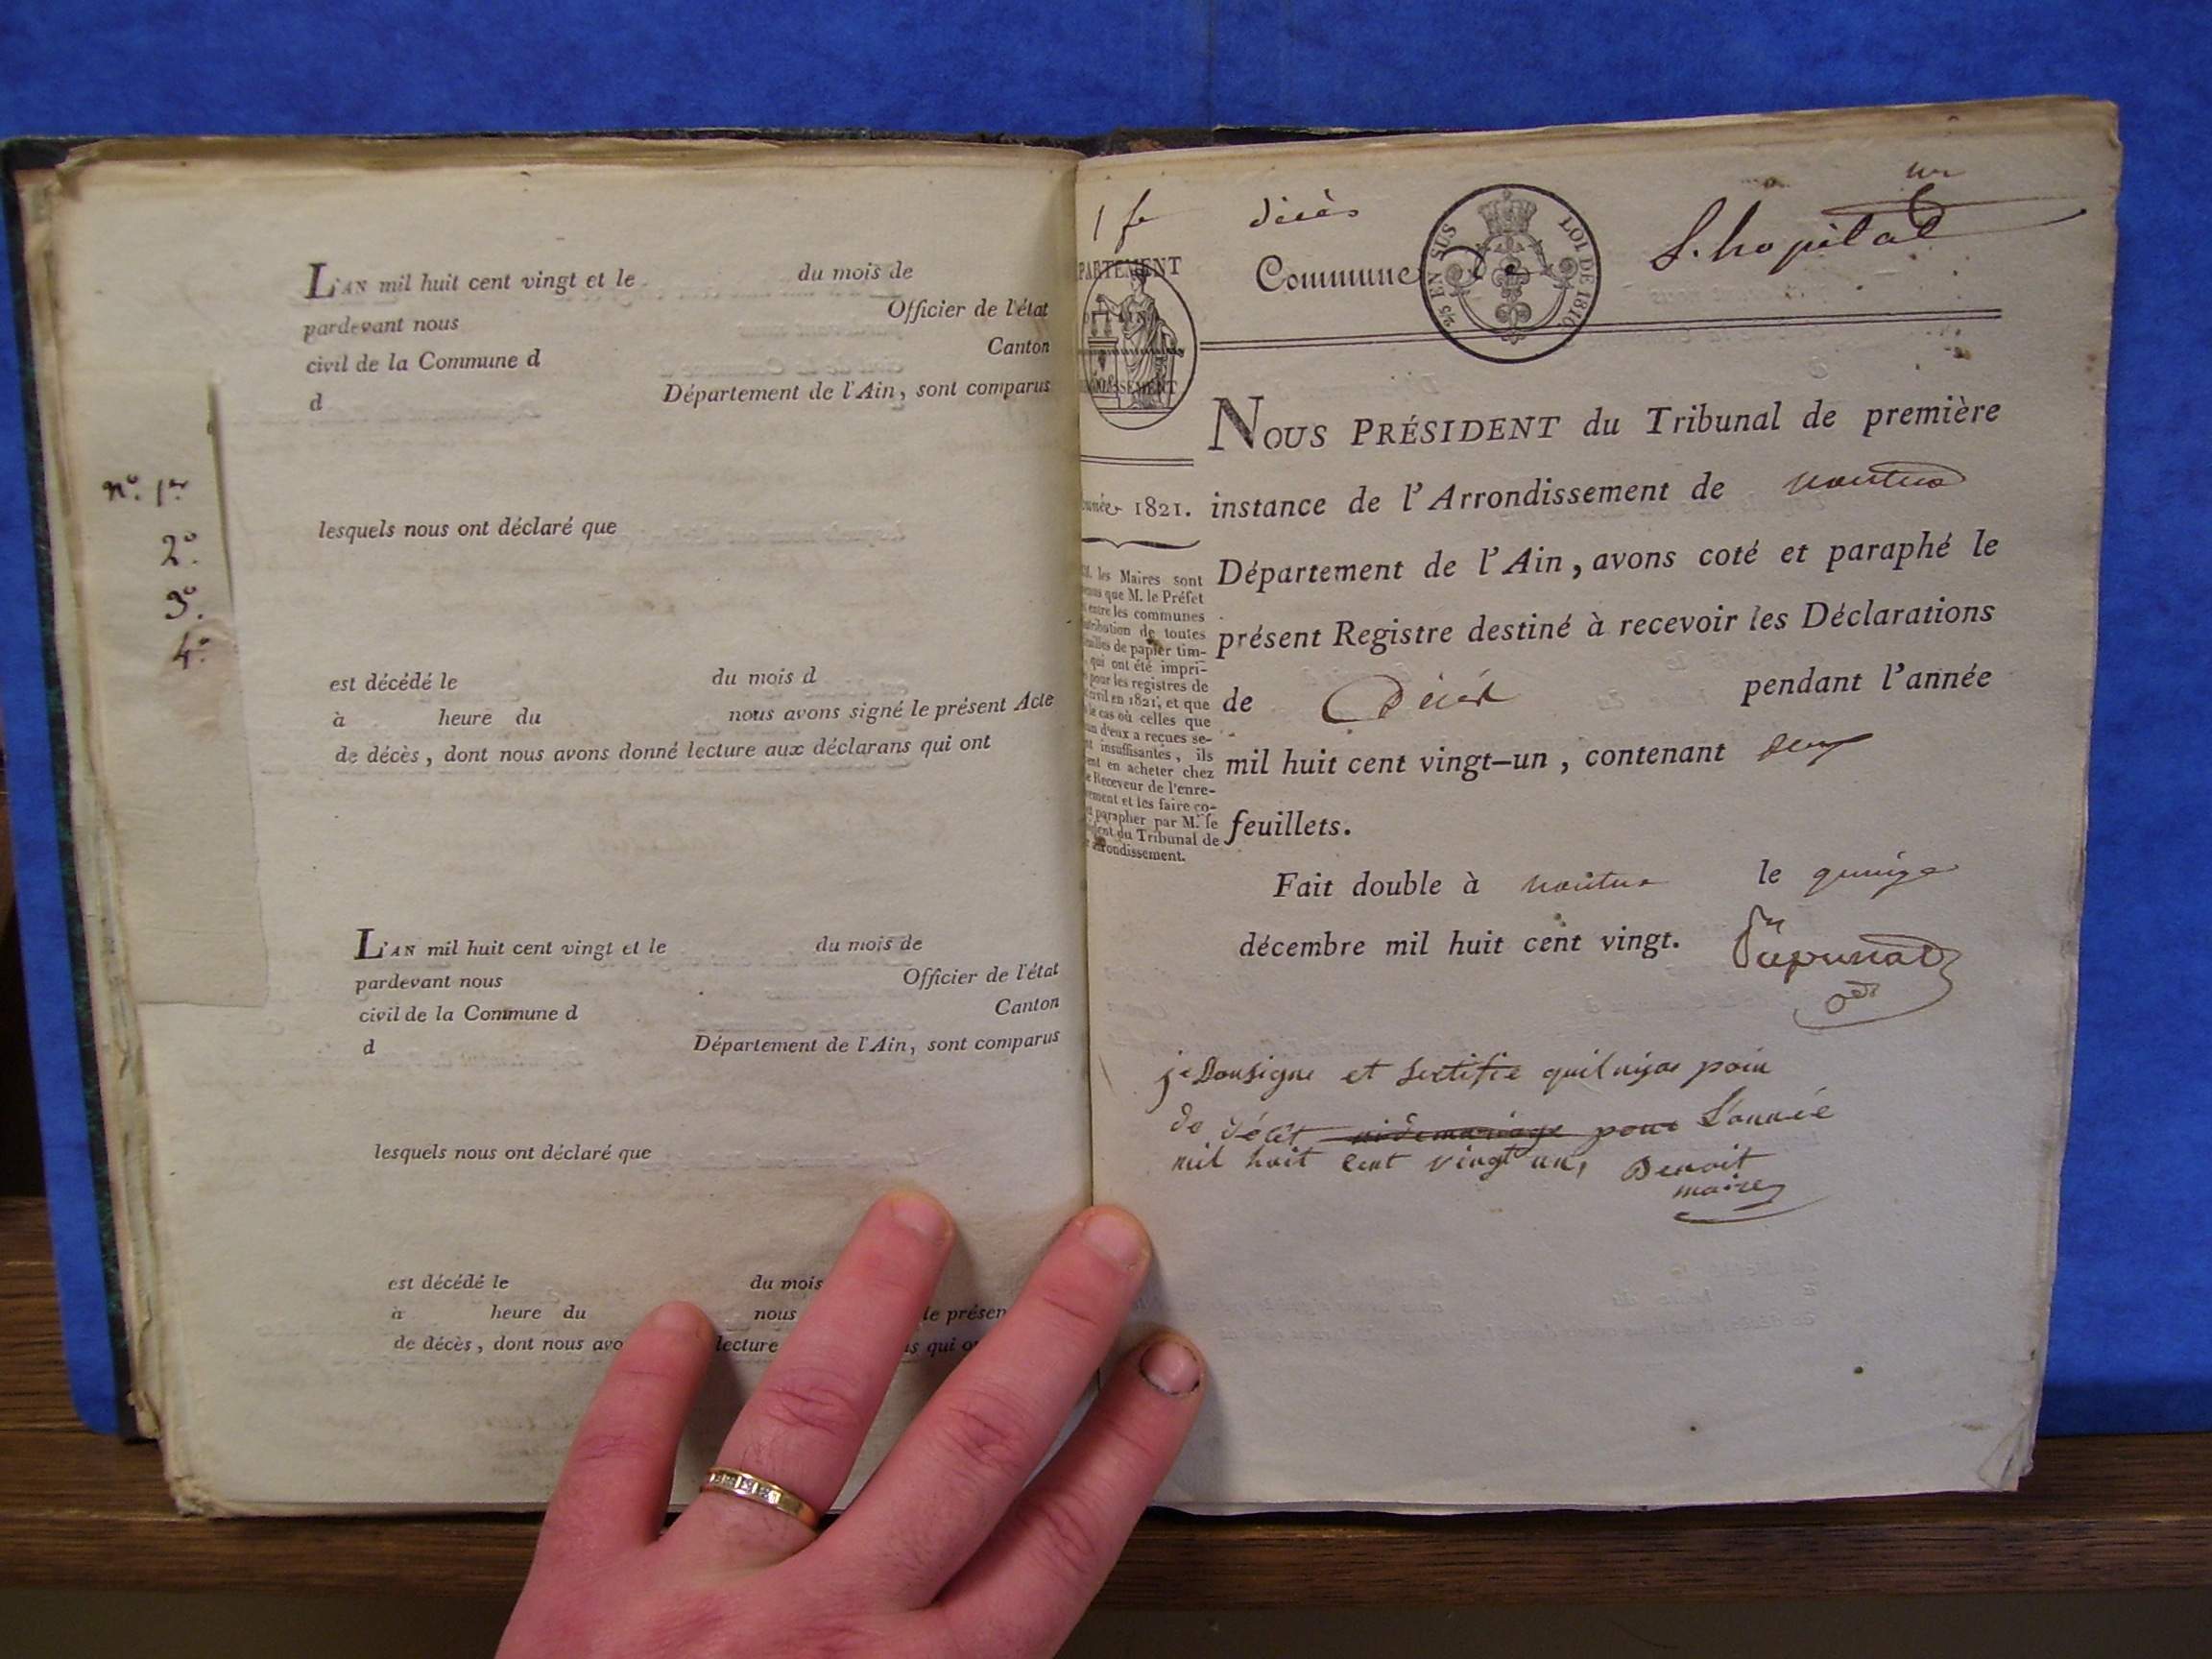 L'AN mil huit cent vingt et le du mois de
pardevant nous Officier de l'état
civil de la Commune d Canton
d Département de l'Ain, sont comparus
lesquels nous ont déclaré que
est décédé le du mois d
à heure du nous avons signé le présent Acte
de décès, dont nous avons donné lecture aux déclarans qui ont
L'AN mil huit cent vingt et le du mois de
pardevant nous Officier de l'état
civil de la Commune d Canton
d Département de l'Ain, sont comparus
lesquels nous ont déclaré que
est décédé le du mois
à heure du nous le présen
de décès, dont nous avo lecture s qui o
n.° 1.er
2.°
3.°
4.°
1 f.e décès
Commune De L'hopital
25 EN SUS LOI DE 1816
PARTEMENT
DE L'AIN
SSEMENT
1821.
les Maires sont
que M. le Préfet
entre les communes
tribution de toutes
uilles de papier tim-
qui ont été impri-
pour les registres de
civil en 1821, et que
le cas où celles que
un d'eux a reçues se-
nt insuffisantes, ils
ent en acheter chez
e Receveur de l'enre-
ement et les faire co-
parapher par M. le
dent du Tribunal de
rrondissement.
NOUS PRÉSIDENT du Tribunal de première
instance de l'Arrondissement de nantua
Département de l'Ain, avons coté et paraphé le
présent Registre destiné à recevoir les Déclarations
de Décès pendant l'année
mil huit cent vingt-un, contenant deux
feuillets.
Fait double à nantua le quinze
décembre mil huit cent vingt.
je Sousigne et sertifie quil niya poin
de décèt ni de mariage pour L'année
mil huit cent vingt un, Benoit
maire